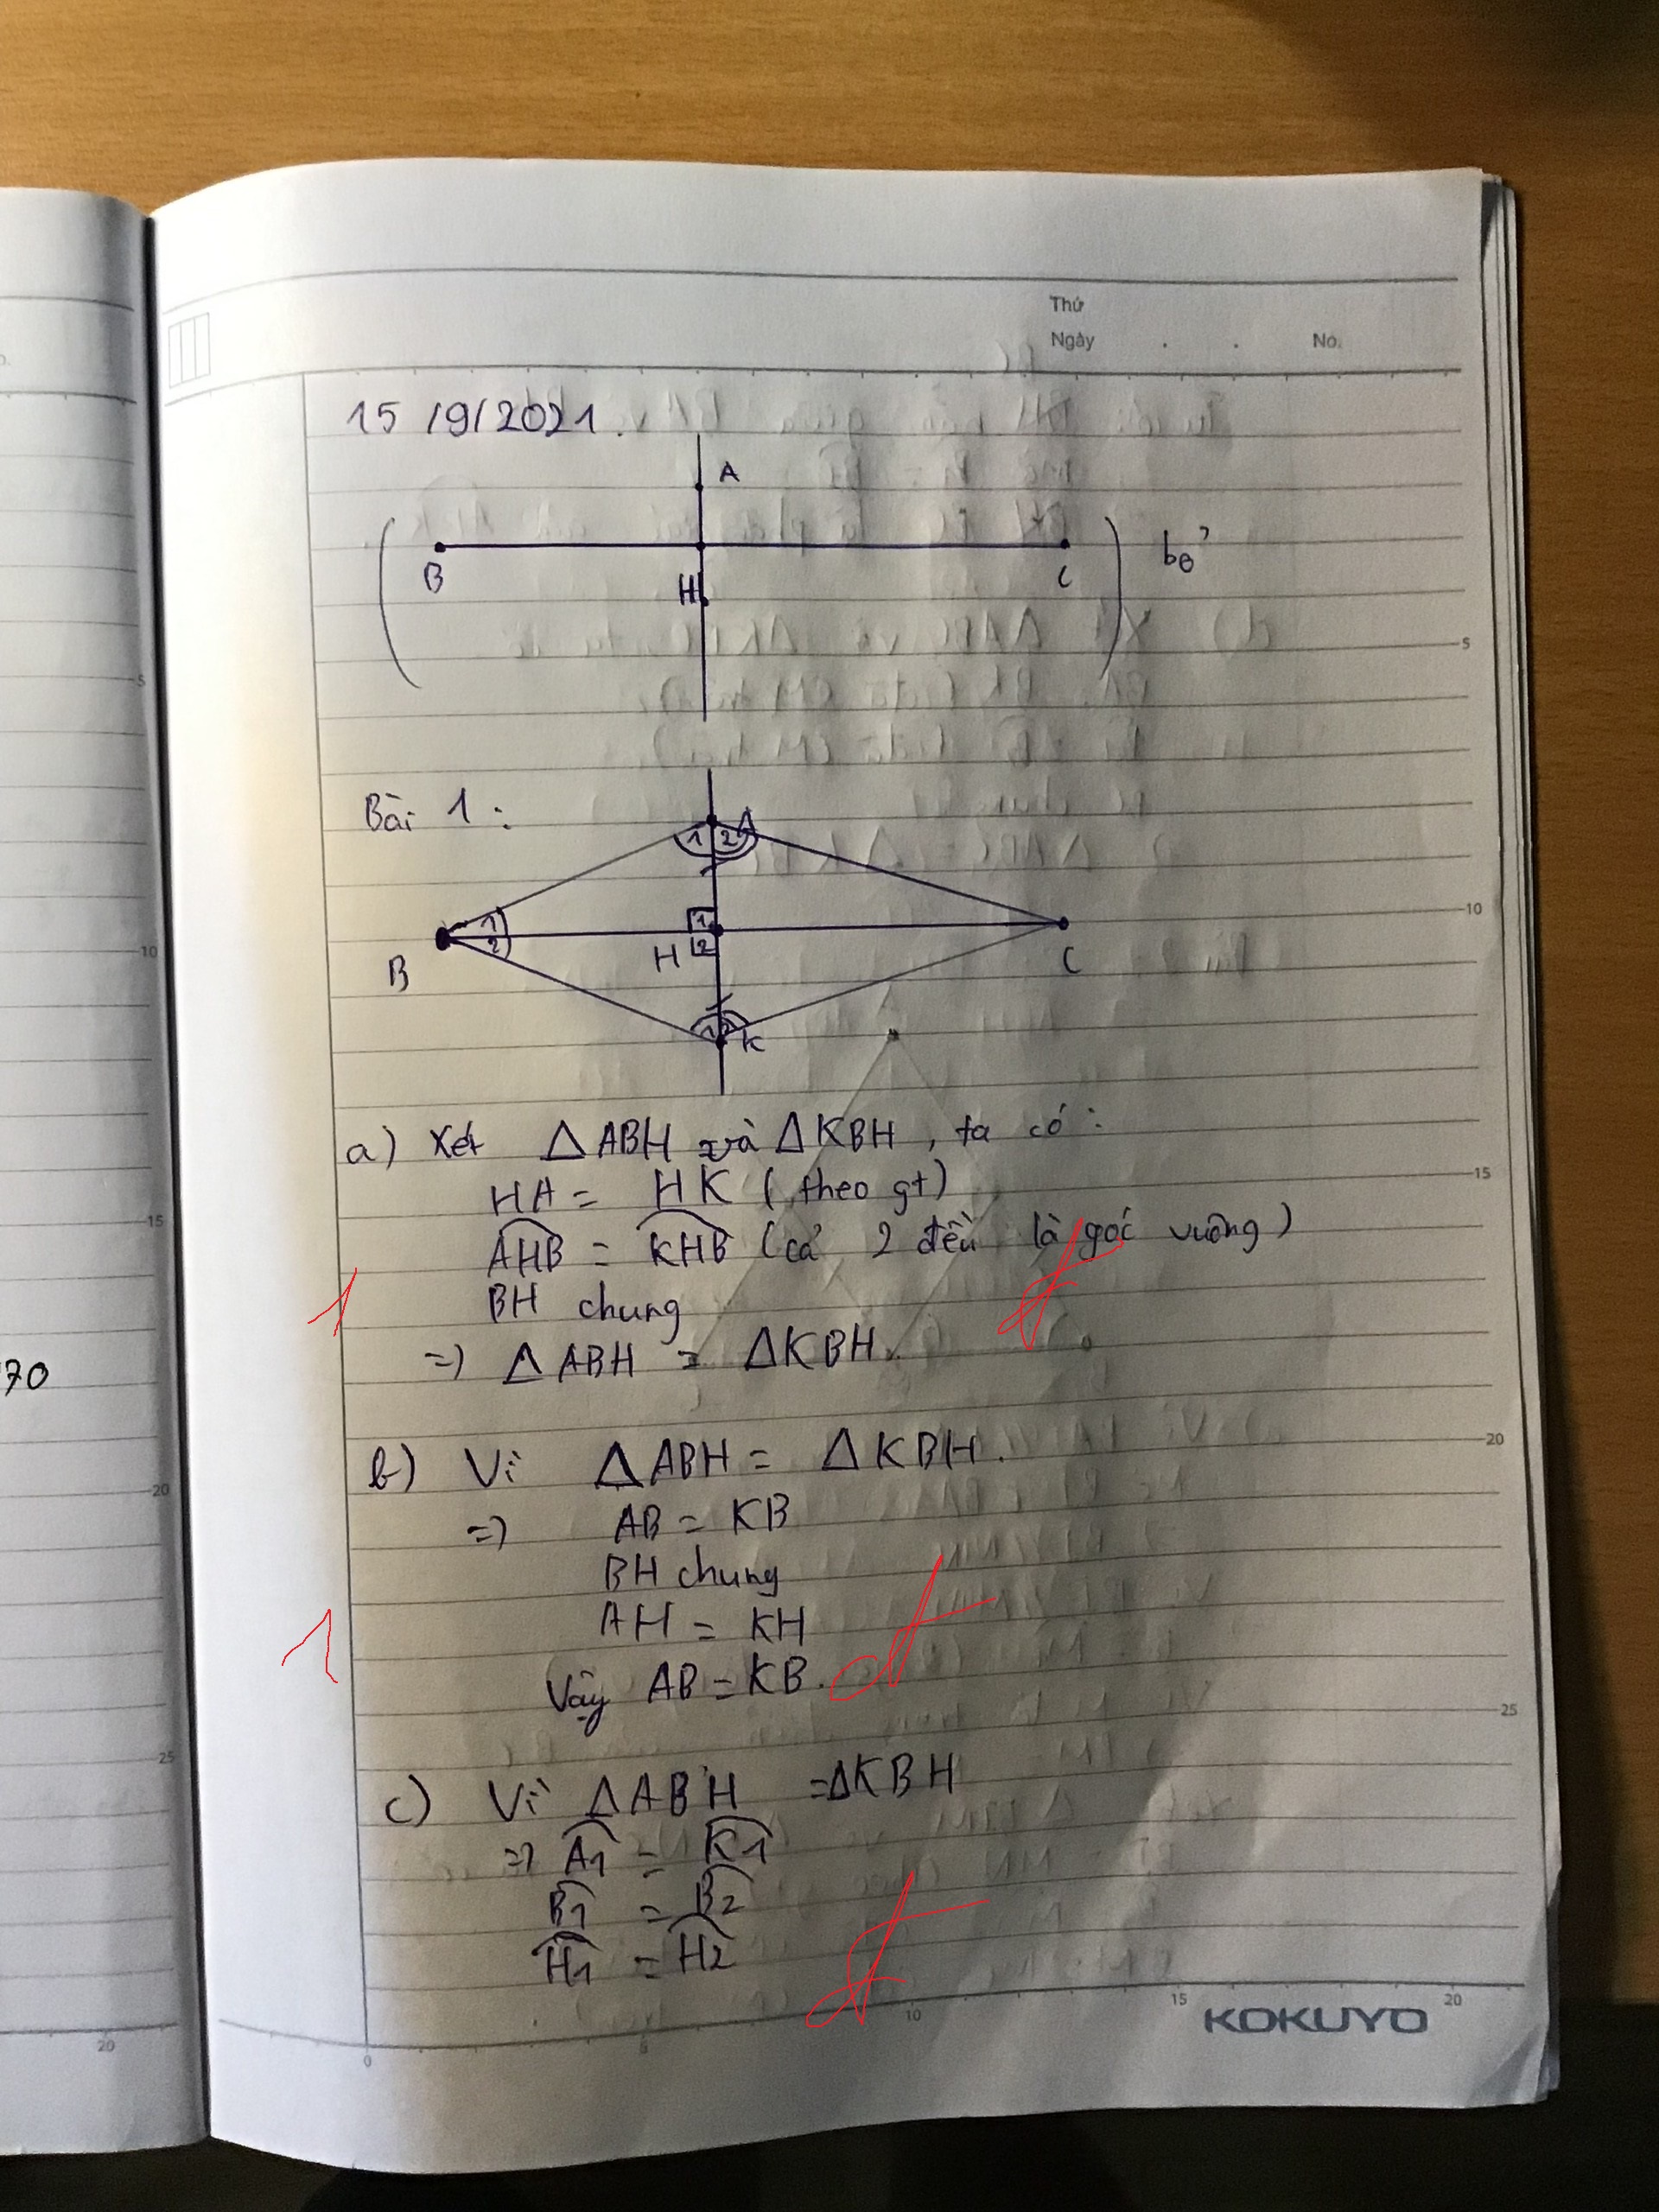 Thứ
Ngày . . No.
15/9/2021.
A
B H C bỏ
Bài 1:
A
1 2
1 1
2 2
B H C
1 2 K
a) Xét ΔABH và ΔKBH, ta có:
HA = HK (theo gt)
AHB = KHB (cả 2 đều là góc vuông)
BH chung
1
=) ΔABH = ΔKBH.
70
b) Vì ΔABH = ΔKBH.
=) AB = KB
BH chung
AH = KH
1
Vậy AB = KB.
c) Vì ΔABH = ΔKBH
=) A1 = K1
B1 = B2
H1 = H2
KOKUYO
5
10
15
20
25
0 5 10 15 20
5
10
15
20
25
20